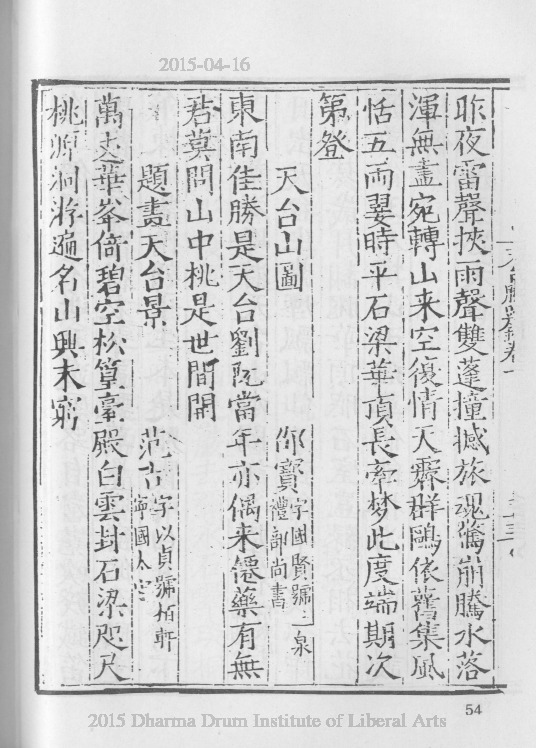 2015-04-16
昨夜雷聲挾雨聲雙蓬撞撼旅魂驚崩騰水落
渾無盡宛轉山来空復情天霽群鷗依舊集風
恬五兩嬃時平石梁華頂長牽梦此度端期次
第登
天台山圖 邵寶 字國賢號二泉 禮部尚書
東南佳勝是天台劉阮當年亦偶来僊藥有無
君莫問山中桃是世間開
題畫天台景 范吉 字以貞號栢軒 寧國太守
萬丈華峯倚碧空松篁臺殿白雲封石梁咫尺
桃源洞游遍名山興未窮
54
2015 Dharma Drum Institute of Liberal Arts